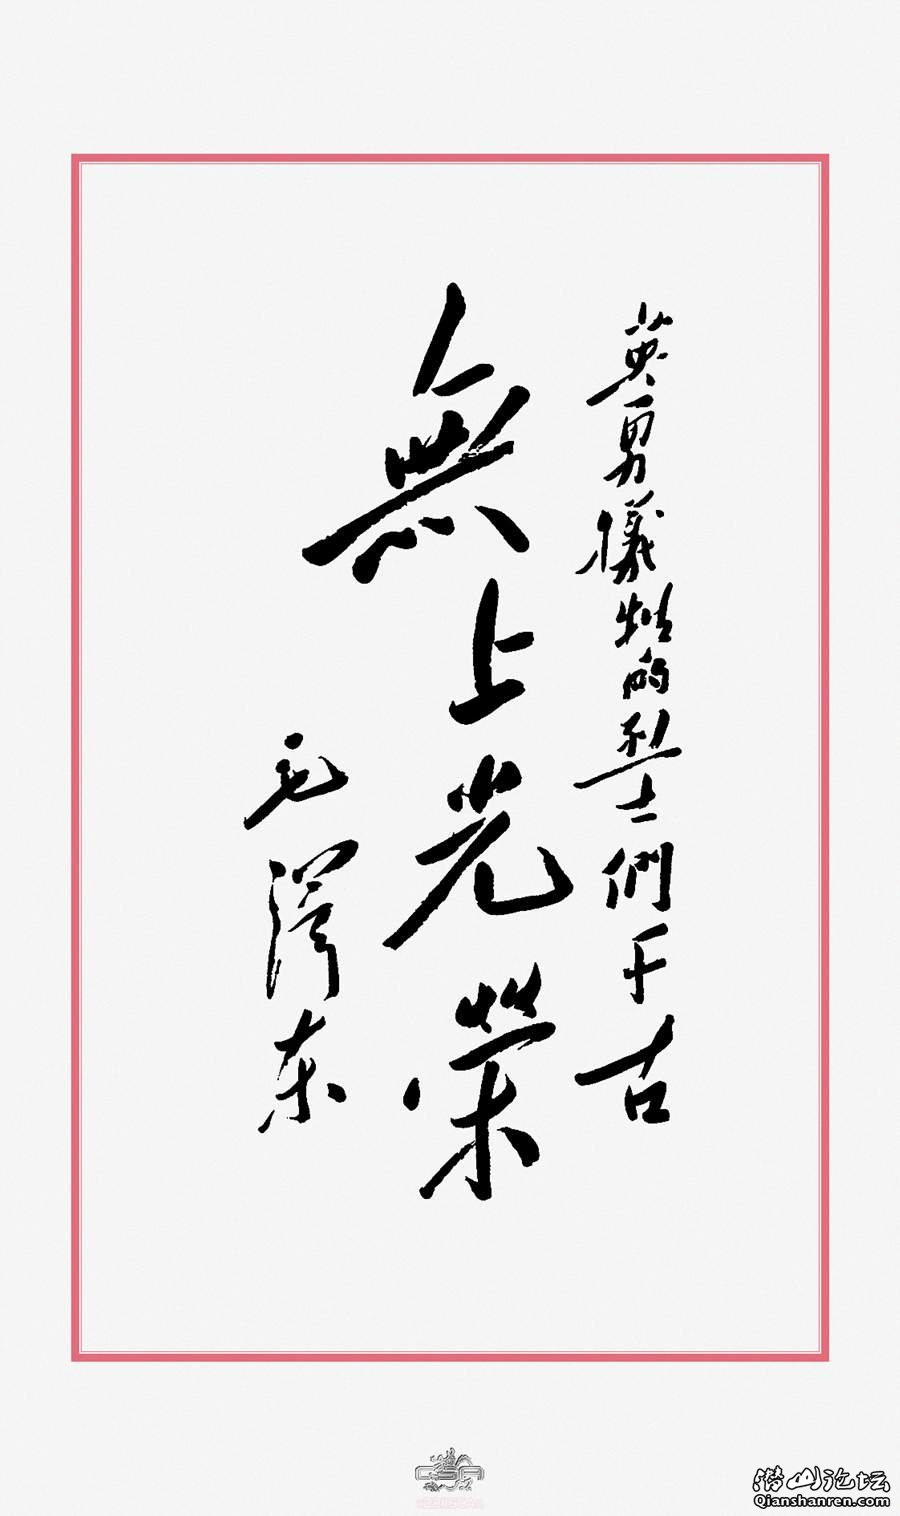 英勇犧牲的烈士們千古
無上光榮
毛澤东
CSA
潜山论坛
Qianshanren.com